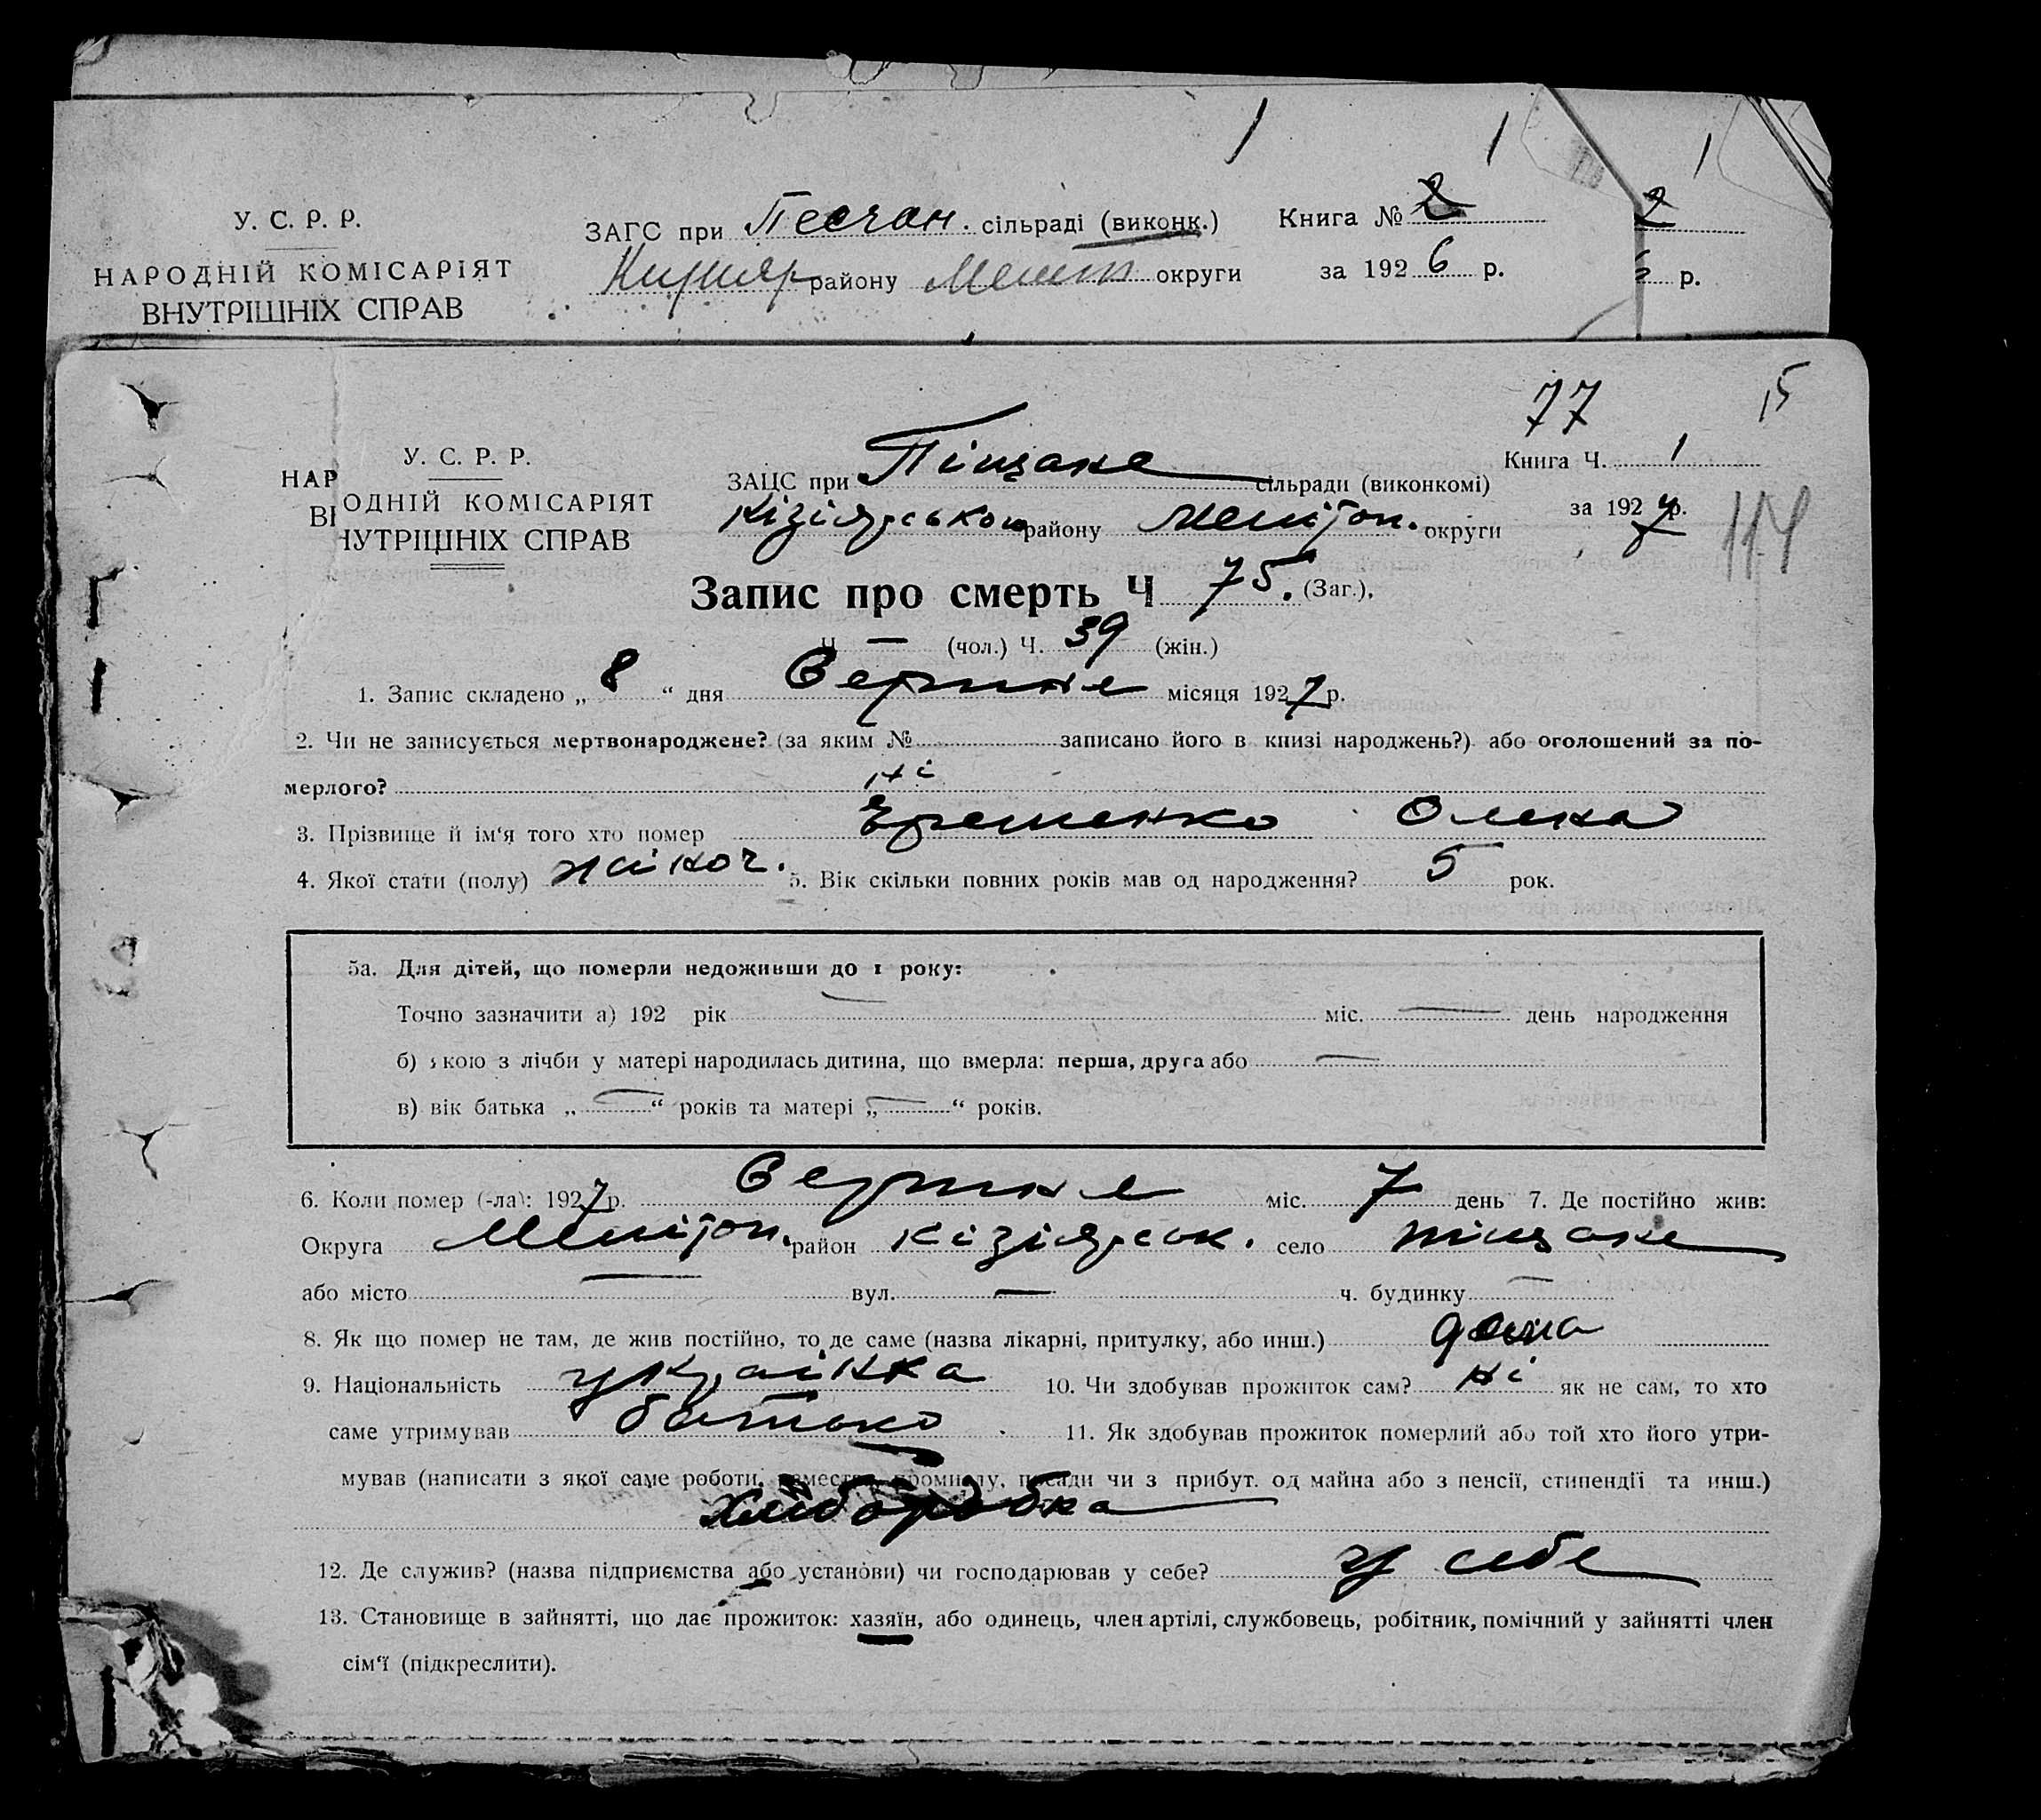 1 1 1
У. С. Р. Р.
НАРОДНІЙ КОМІСАРІЯТ
ВНУТРІШНІХ СПРАВ
ЗАГС при Песчан. сільраді (виконк.) Книга № 2 2
району Меліт округи за 1926 р. 6 р.
77 15
У. С. Р. Р.
НАРОДНІЙ КОМІСАРІЯТ
ВНУТРІШНІХ СПРАВ
ЗАЦС при Піщане сільради (виконкомі) Книга Ч. 1
Кізіярського району Мелітоп. округи за 1927 р. 114
Запис про смерть Ч 75. (Заг.),
Ч — (чол.) Ч. 39 (жін.)
1. Запис складено „ 8 “ дня Серпня місяця 1927 р.
2. Чи не записується мертвонароджене? (за яким № записано його в книзі народжень?) або оголошений за по-
мерлого? ні
3. Прізвище й ім‘я того хто помер Єременко Олена
4. Якої стати (полу) жіноч. 5. Вік скільки повних років мав од народження? 5 рок.
5а. Для дітей, що померли недоживши до 1 року:
Точно зазначити а) 192 рік — міс. — день народження
б) якою з лічби у матері народилась дитина, що вмерла: перша, друга або —
в) вік батька „ — “ років та матері „ — “ років.
6. Коли помер (-ла): 1927 р. Серпня міс. 7 день 7. Де постійно жив:
Округа Мелітоп. район Кізіярськ. село Піщане
або місто — вул. — ч. будинку —
8. Як що помер не там, де жив постійно, то де саме (назва лікарні, притулку, або инш.) дома
9. Національність українка 10. Чи здобував прожиток сам? ні як не сам, то хто
саме утримував батько 11. Як здобував прожиток померлий або той хто його утри-
мував (написати з якої саме роботи, ремества, промислу, посади чи з прибут. од майна або з пенсії, стипендії та инш.)
Хліборобка
12. Де служив? (назва підприємства або установи) чи господарював у себе? у себе
13. Становище в зайнятті, що дає прожиток: хазяїн, або одинець, член артілі, службовець, робітник, помічний у зайнятті член
сім‘ї (підкреслити).